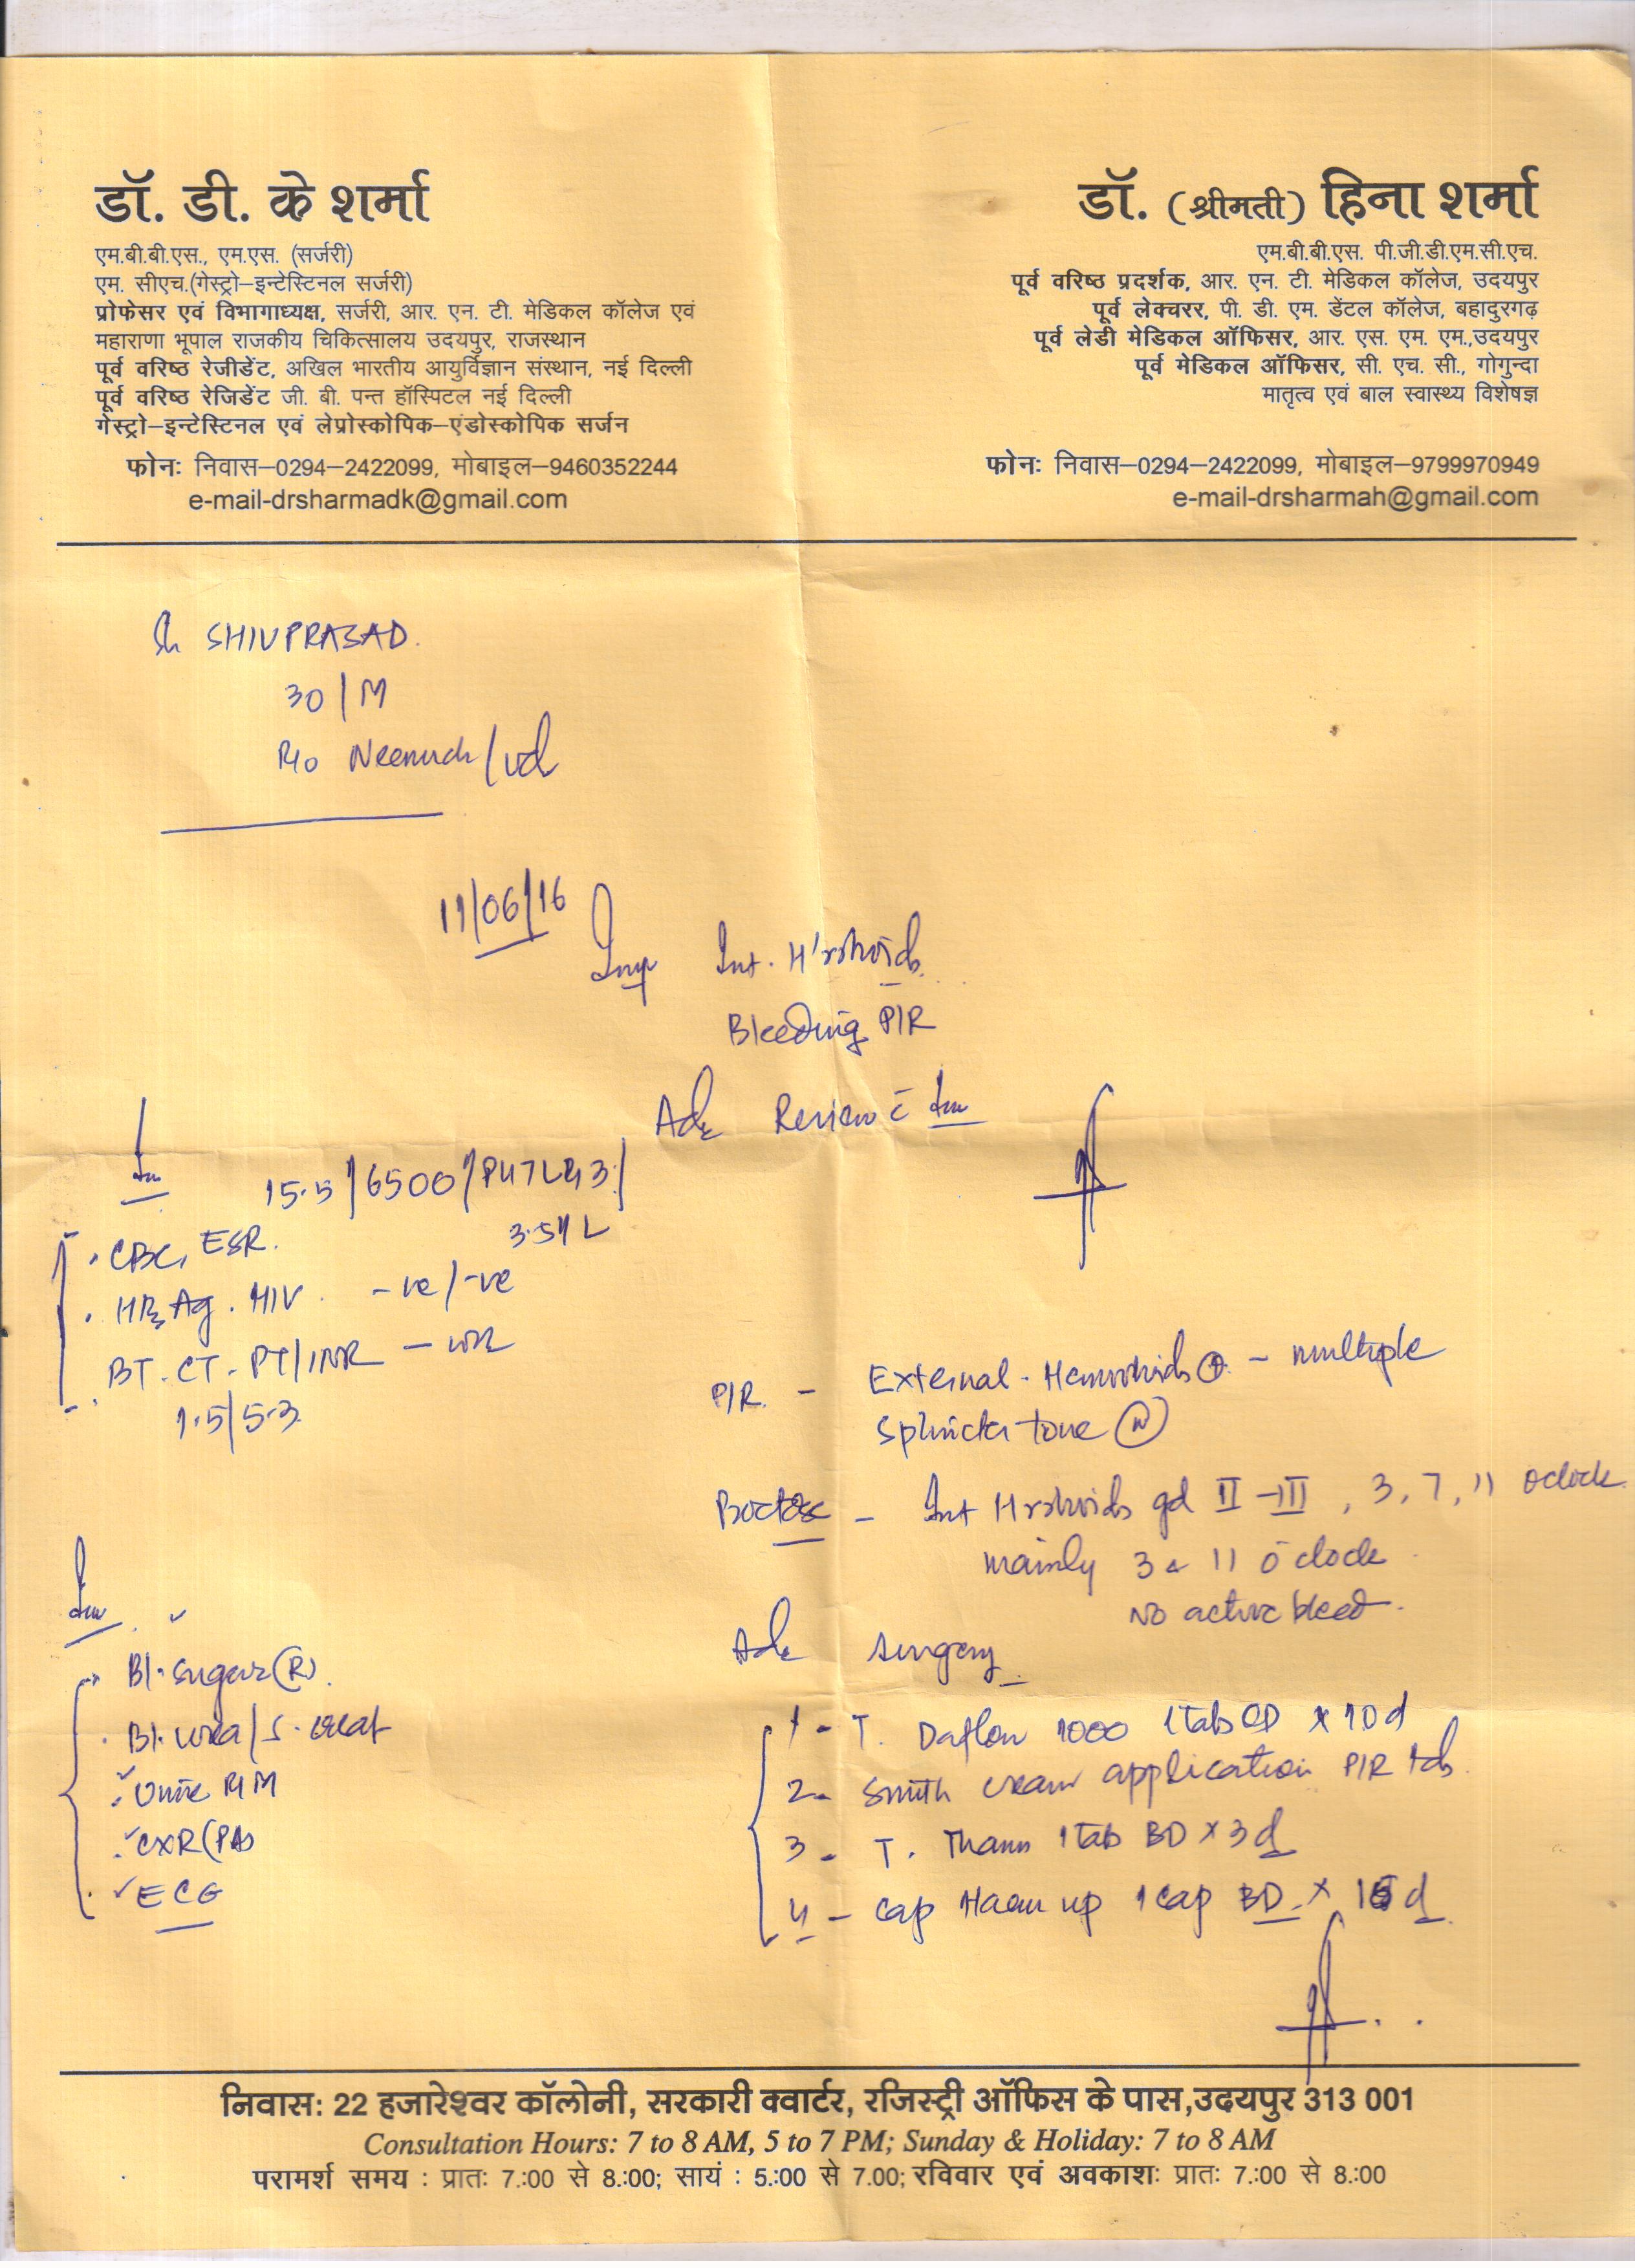 डॉ. डी. के शर्मा
एम.बी.बी.एस., एम.एस. (सर्जरी)
एम. सीएच.(गेस्ट्रो–इन्टेस्टिनल सर्जरी)
प्रोफेसर एवं विभागाध्यक्ष, सर्जरी, आर. एन. टी. मेडिकल कॉलेज एवं
महाराणा भूपाल राजकीय चिकित्सालय उदयपुर, राजस्थान
पूर्व वरिष्ठ रेजीडेंट, अखिल भारतीय आयुर्विज्ञान संस्थान, नई दिल्ली
पूर्व वरिष्ठ रेजिडेंट जी. बी. पन्त हॉस्पिटल नई दिल्ली
गेस्ट्रो–इन्टेस्टिनल एवं लेप्रोस्कोपिक–एंडोस्कोपिक सर्जन
फोनः निवास–0294–2422099, मोबाइल–9460352244
e-mail-drsharmadk@gmail.com
डॉ. (श्रीमती) हिना शर्मा
एम.बी.बी.एस. पी.जी.डी.एम.सी.एच.
पूर्व वरिष्ठ प्रदर्शक, आर. एन. टी. मेडिकल कॉलेज, उदयपुर
पूर्व लेक्चरर, पी. डी. एम. डेंटल कॉलेज, बहादुरगढ़
पूर्व लेडी मेडिकल ऑफिसर, आर. एस. एम. एम.,उदयपुर
पूर्व मेडिकल ऑफिसर, सी. एच. सी., गोगुन्दा
मातृत्व एवं बाल स्वास्थ्य विशेषज्ञ
फोनः निवास–0294–2422099, मोबाइल–9799970949
e-mail-drsharmah@gmail.com
Sh SHIVPRASAD.
30/M
R/o Neemuch/
11/06/16
Imp Int. H'rrhoids.
Bleeding P/R
Adv Review c̄ Inv
Inv
15.5/6500/P47L43/
3.54 L
CBC, ESR.
HBsAg. HIV. -ve/-ve
BT. CT. PT/INR –
1.5/5.3
P/R. – External. Hemorrhoids ⊕ – multiple
Sphincter tone Ⓝ
Proctosc – Int Hrrhoids gd II–III, 3, 7, 11 oclock
mainly 3 & 11 o'clock
No active bleed.
Inv
Bl. Sugar (R).
Bl. urea/S. creat
Urine R/M
CXR (PA)
ECG
Adv Surgery
1- T. Daflon 1000 1tab OD x 10d
2- Smuth cream application P/R tds
3- T. Thann 1tab BD x 3d
4- Cap Haem up 1cap BD. x 15d
निवासः 22 हजारेश्वर कॉलोनी, सरकारी क्वार्टर, रजिस्ट्री ऑफिस के पास,उदयपुर 313 001
Consultation Hours: 7 to 8 AM, 5 to 7 PM; Sunday & Holiday: 7 to 8 AM
परामर्श समय : प्रातः 7.:00 से 8.:00; सायं : 5.:00 से 7.00; रविवार एवं अवकाशः प्रातः 7.:00 से 8.:00